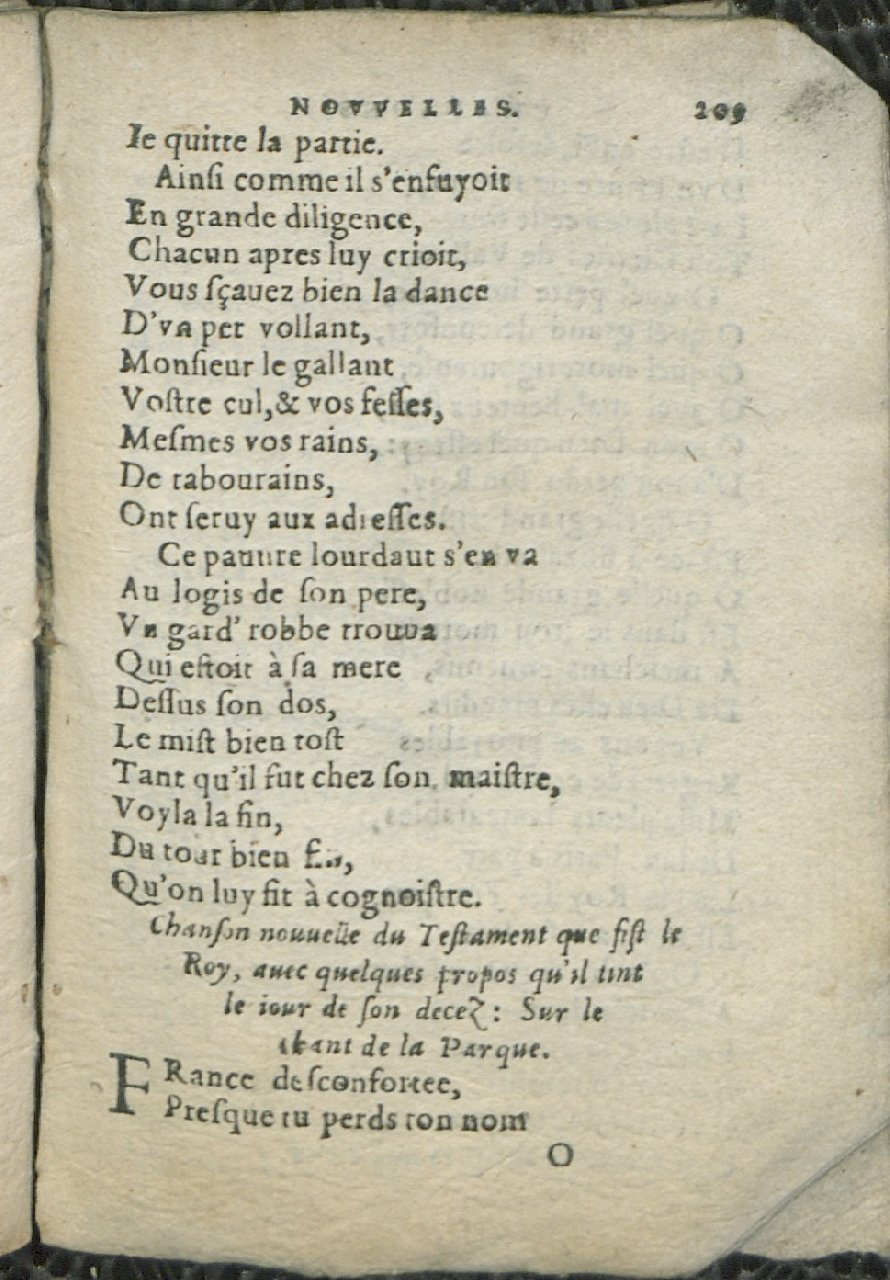 NOVVELLES. 209
Ie quitte la partie.
Ainſi comme il s'enfuyoit
En grande diligence,
Chacun apres luy crioit,
Vous ſçauez bien la dance
D'vn pet vollant,
Monſieur le gallant
Voſtre cul,& vos feſſes,
Meſmes vos rains,
De tabourains,
Ont ſeruy aux adreſſes.
Ce pauure lourdaut s'en va
Au logis de ſon pere,
Vn gard' robbe trouua
Qui eſtoit à ſa mere
Deſſus ſon dos,
Le miſt bien toſt
Tant qu'il fut chez ſon maiſtre,
Voyla la fin,
Du tour bien fin,
Qu'on luy fit à cognoiſtre.
Chanſon nouuelle du Teſtament que fiſt le
Roy, auec quelques propos qu'il tint
le iour de ſon decez: Sur le
chant de la Parque.
FRance deſconfortee,
Preſque tu perds ton nom
O